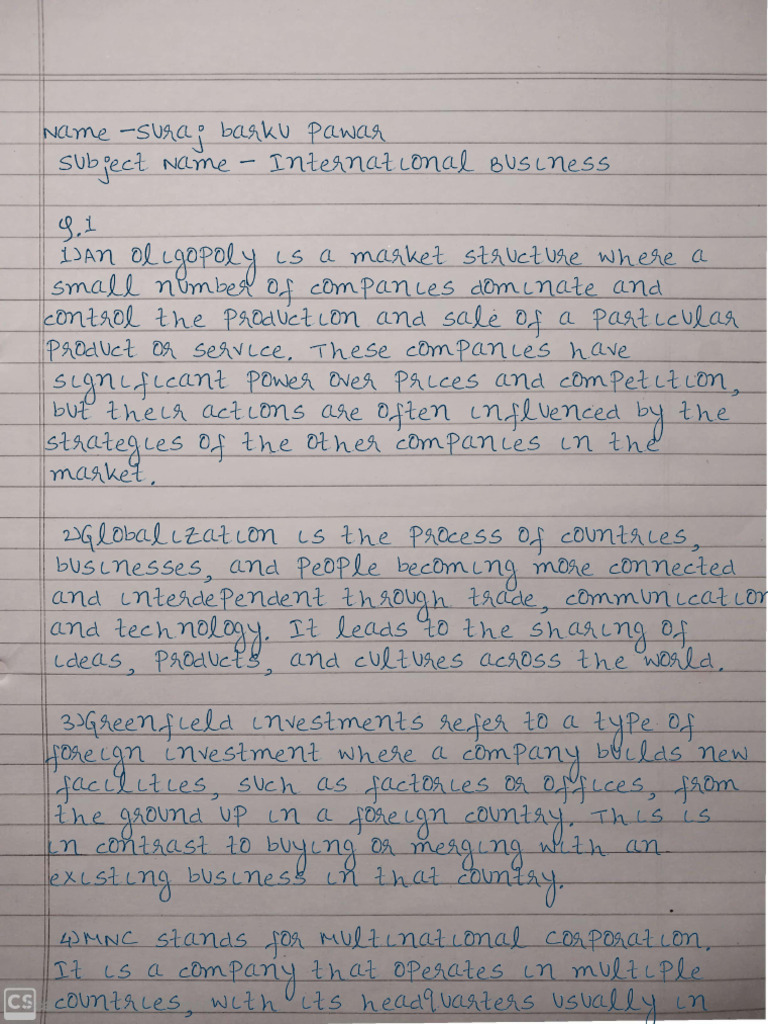 Name - Suraj barku Pawar
Subject Name - International Business
Q.1
1) An oligopoly is a market structure where a
small number of companies dominate and
control the production and sale of a particular
product or service. These companies have
significant power over prices and competition,
but their actions are often influenced by the
strategies of the other companies in the
market.
2) Globalization is the process of countries,
businesses, and people becoming more connected
and interdependent through trade, communication
and technology. It leads to the sharing of
ideas, products, and cultures across the world.
3) Greenfield investments refer to a type of
foreign investment where a company builds new
facilities, such as factories or offices, from
the ground up in a foreign country. This is
in contrast to buying or merging with an
existing business in that country.
4) MNC stands for Multinational Corporation.
It is a company that operates in multiple
countries, with its headquarters usually in
CS